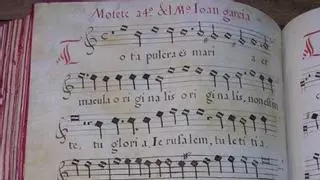 Motete 24º. del Mº. Ioan garcia
T
o ta pulcra es mari a et
macula o ri gi na lis o ri gi na lis, non est in
te, tu glori a, Ie ru sa lem, tu le ti tia